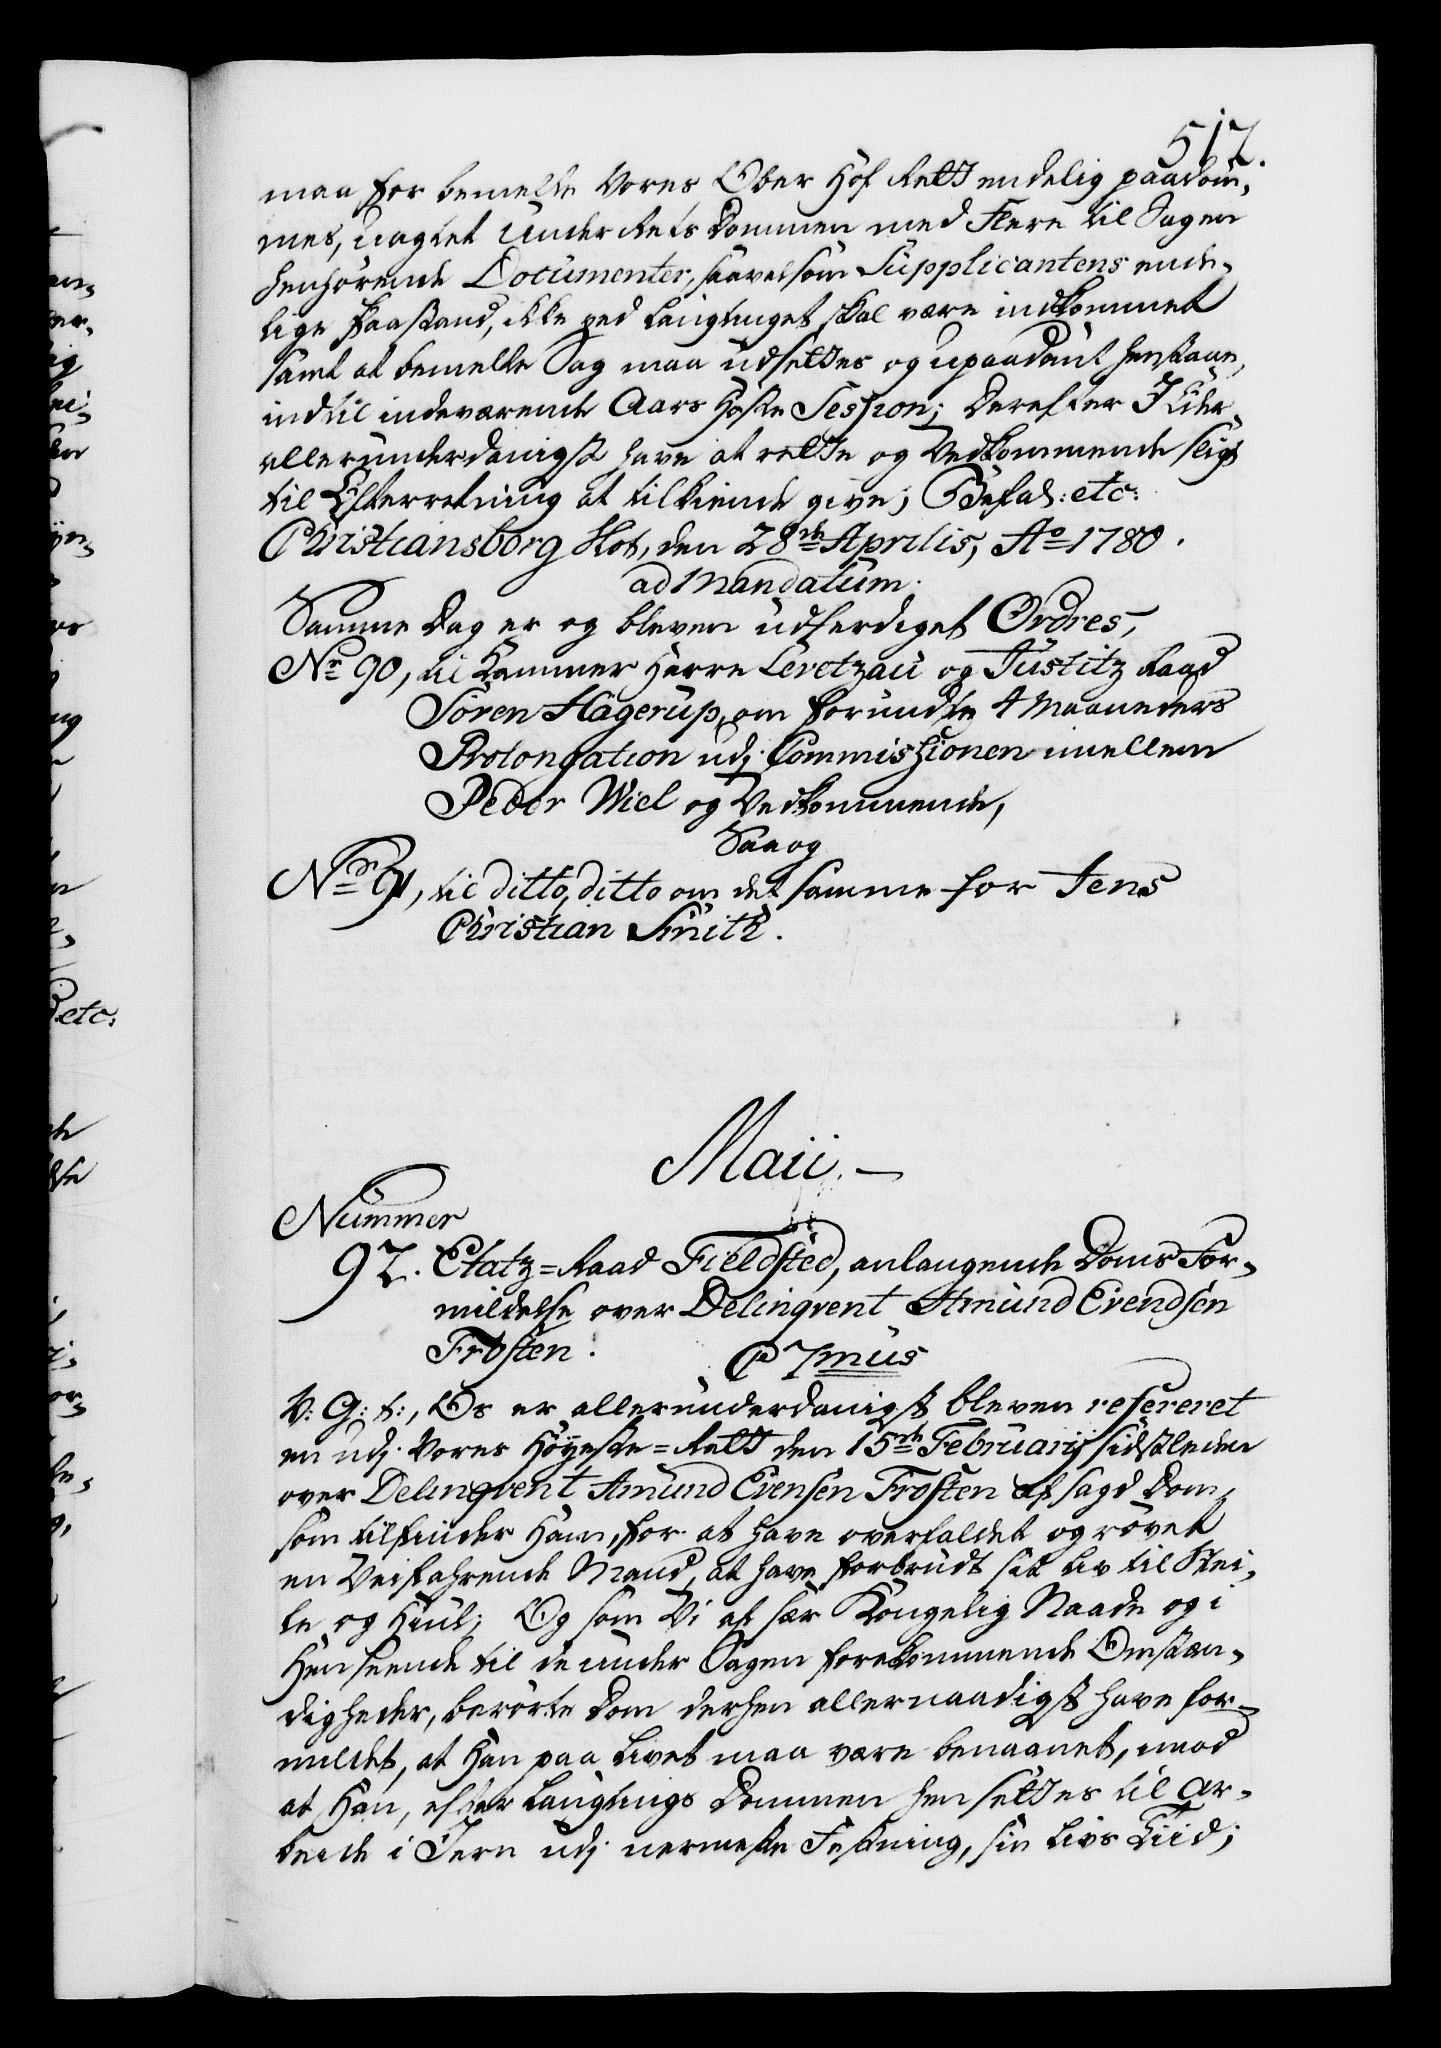 517.
maa for bemelte Vores Ober Hof Rett endelig paadøm„
mes, uagtet Under Rets Dommen med Flere til Sagen
henhørende Documenter, saavelsom Supplicantens ende„
lige Paastand, ikke ved Laugtinget skal være indkommet
samt at bemelte Sag maa udsettes og upaadømt henstaae,
indtil indeværende Aars Høste Session; Derefter I Eder
allerunderdanigst have at rette og Vedkommende sligt
til Efterretning at tilkiende give; Befal: etc:
Christiansborg Slot, den 28de Aprilis, Ao 1780.
ad Mandatum.
Samme Dag er og bleven udferdiget Ordres,
No 90, til Kammer Herre Levetzau og Justitz Raad
Søren Hagerup, om forundte 4 Maaneders
Prolongation udj Commissionen imellem
Peder Wiel og Vedkommende,
Saa og
No 91, til ditto, ditto om det samme for Jens
Christian Smith.
Maii.
Nummer
92. Etatz=Raad Fieldsted, anlangende Doms For„
mildelse over Delinqvent Amund Evendsen
Frosten.
C 7mus
V: G: t:, Os er allerunderdanigst bleven refereret
en udj Vores Høyeste=Rett den 15de Februarij sidstleden
over Delinqvent Amund Evensen Frosten afsagd Dom,
som tilfinder Ham, for at have overfaldet og røvet
en Veifahrende Mand, at have forbrudt sit Liv til Stei„
le og Hiul; Og som Vi af sær Kongelig Naade og i
Henseende til de under Sagen forekommende Omstæn„
digheder, berørte Dom derhen allernaadigst have for„
mildet, at Han paa Livet maa være benaadet, imod
at Han, efter Laugtings Dommen hensettes til Ar„
beide i Jern udj nermeste Festning, sin Livs Tiid;